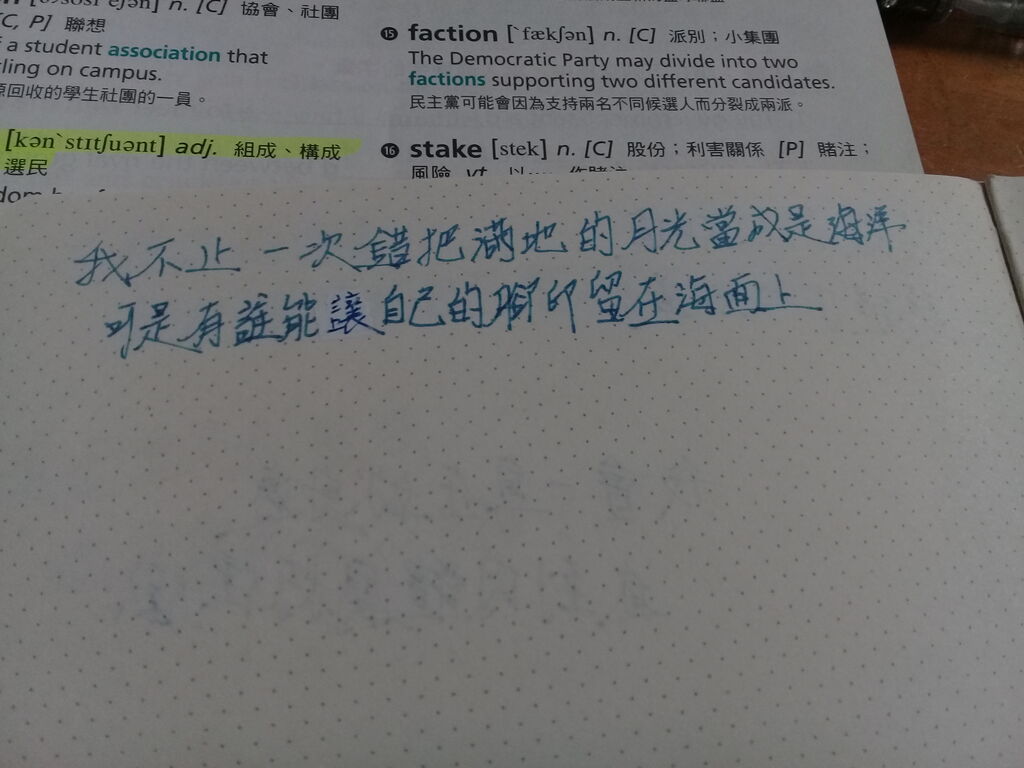 n. [C] 協會、社團
[C, P] 聯想
a student association that
ling on campus.
回收的學生社團的一員。
[kən`stɪtʃuənt] adj. 組成、構成
選民
⓯ faction [`fækʃən] n. [C] 派別；小集團
The Democratic Party may divide into two
factions supporting two different candidates.
民主黨可能會因為支持兩名不同候選人而分裂成兩派。
⓰ stake [stek] n. [C] 股份；利害關係 [P] 賭注；
風險 vt. 以…作賭注
我不止一次錯把滿地的月光當成是海洋
可是有誰能讓自己的腳印留在海面上